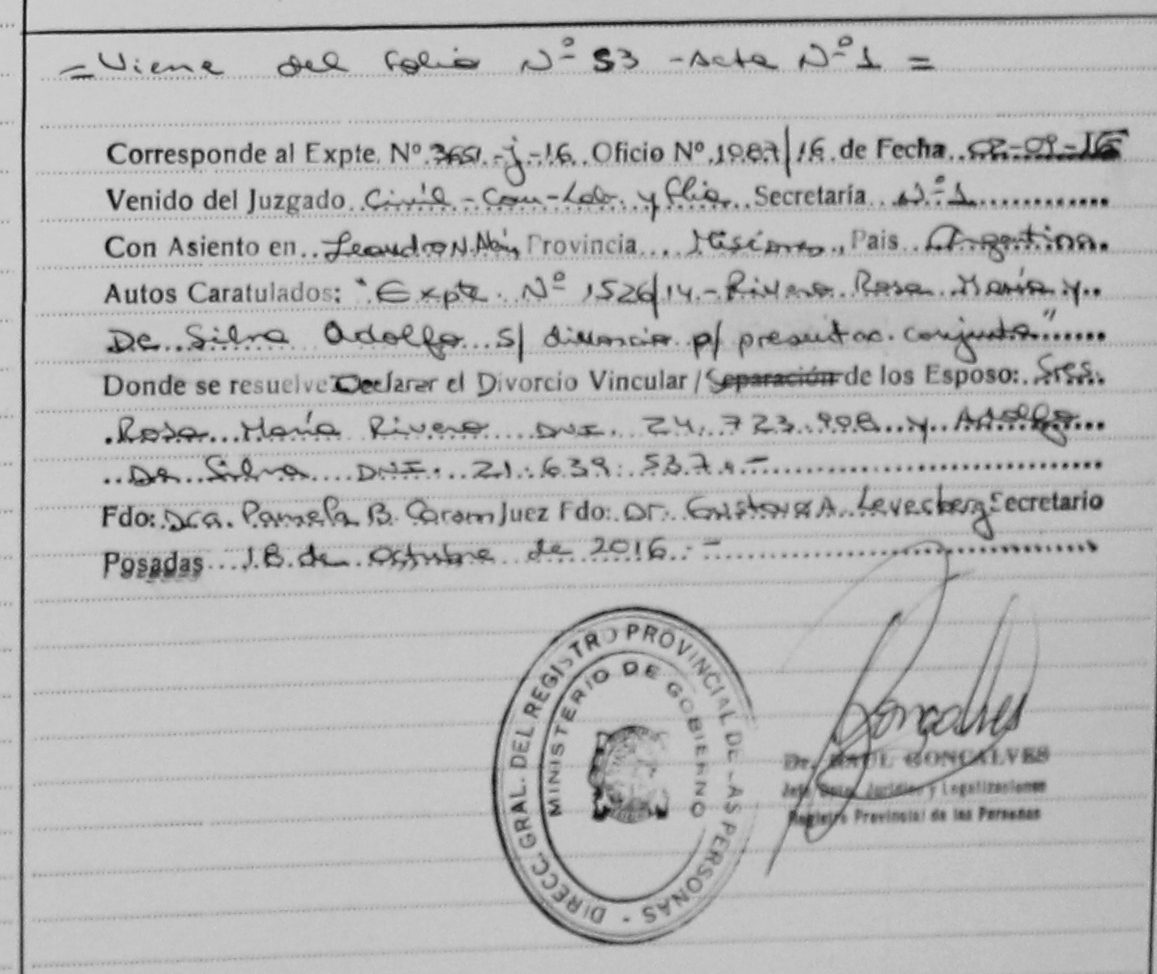 = Viene del Folio Nº 53 - Acta Nº 1 =
Corresponde al Expte. Nº 3651-j-16 Oficio Nº 1087/16 de Fecha 02-09-16
Venido del Juzgado Civil - Com - Lab. y Flia. Secretaría Nº 1
Con Asiento en Leandro N. Alem, Provincia Misiones, País Argentina.
Autos Caratulados: "Expte. Nº 1526/14 - Rivero Rosa María y
De Silva Adolfo s/ divorcio p/ presentac. conjunta"
Donde se resuelve Declarar el Divorcio Vincular / Separación de los Esposo: Sres.
Rosa María Rivero DNI. 24.723.908 y Adolfo
De Silva DNI. 21.639.537.-
Fdo: Dra. Pamela B. Juez Fdo: Dr. Gustavo A. Levesberg Secretario
Posadas 18 de Octubre de 2016.-
DIRECC. GRAL. DEL REGISTRO PROVINCIAL DE LAS PERSONAS -
MINISTERIO DE GOBIERNO
Goncalves
Dr. RAUL GONCALVES
Jefe Dpto. Jurídico y Legalizaciones
Registro Provincial de las Personas